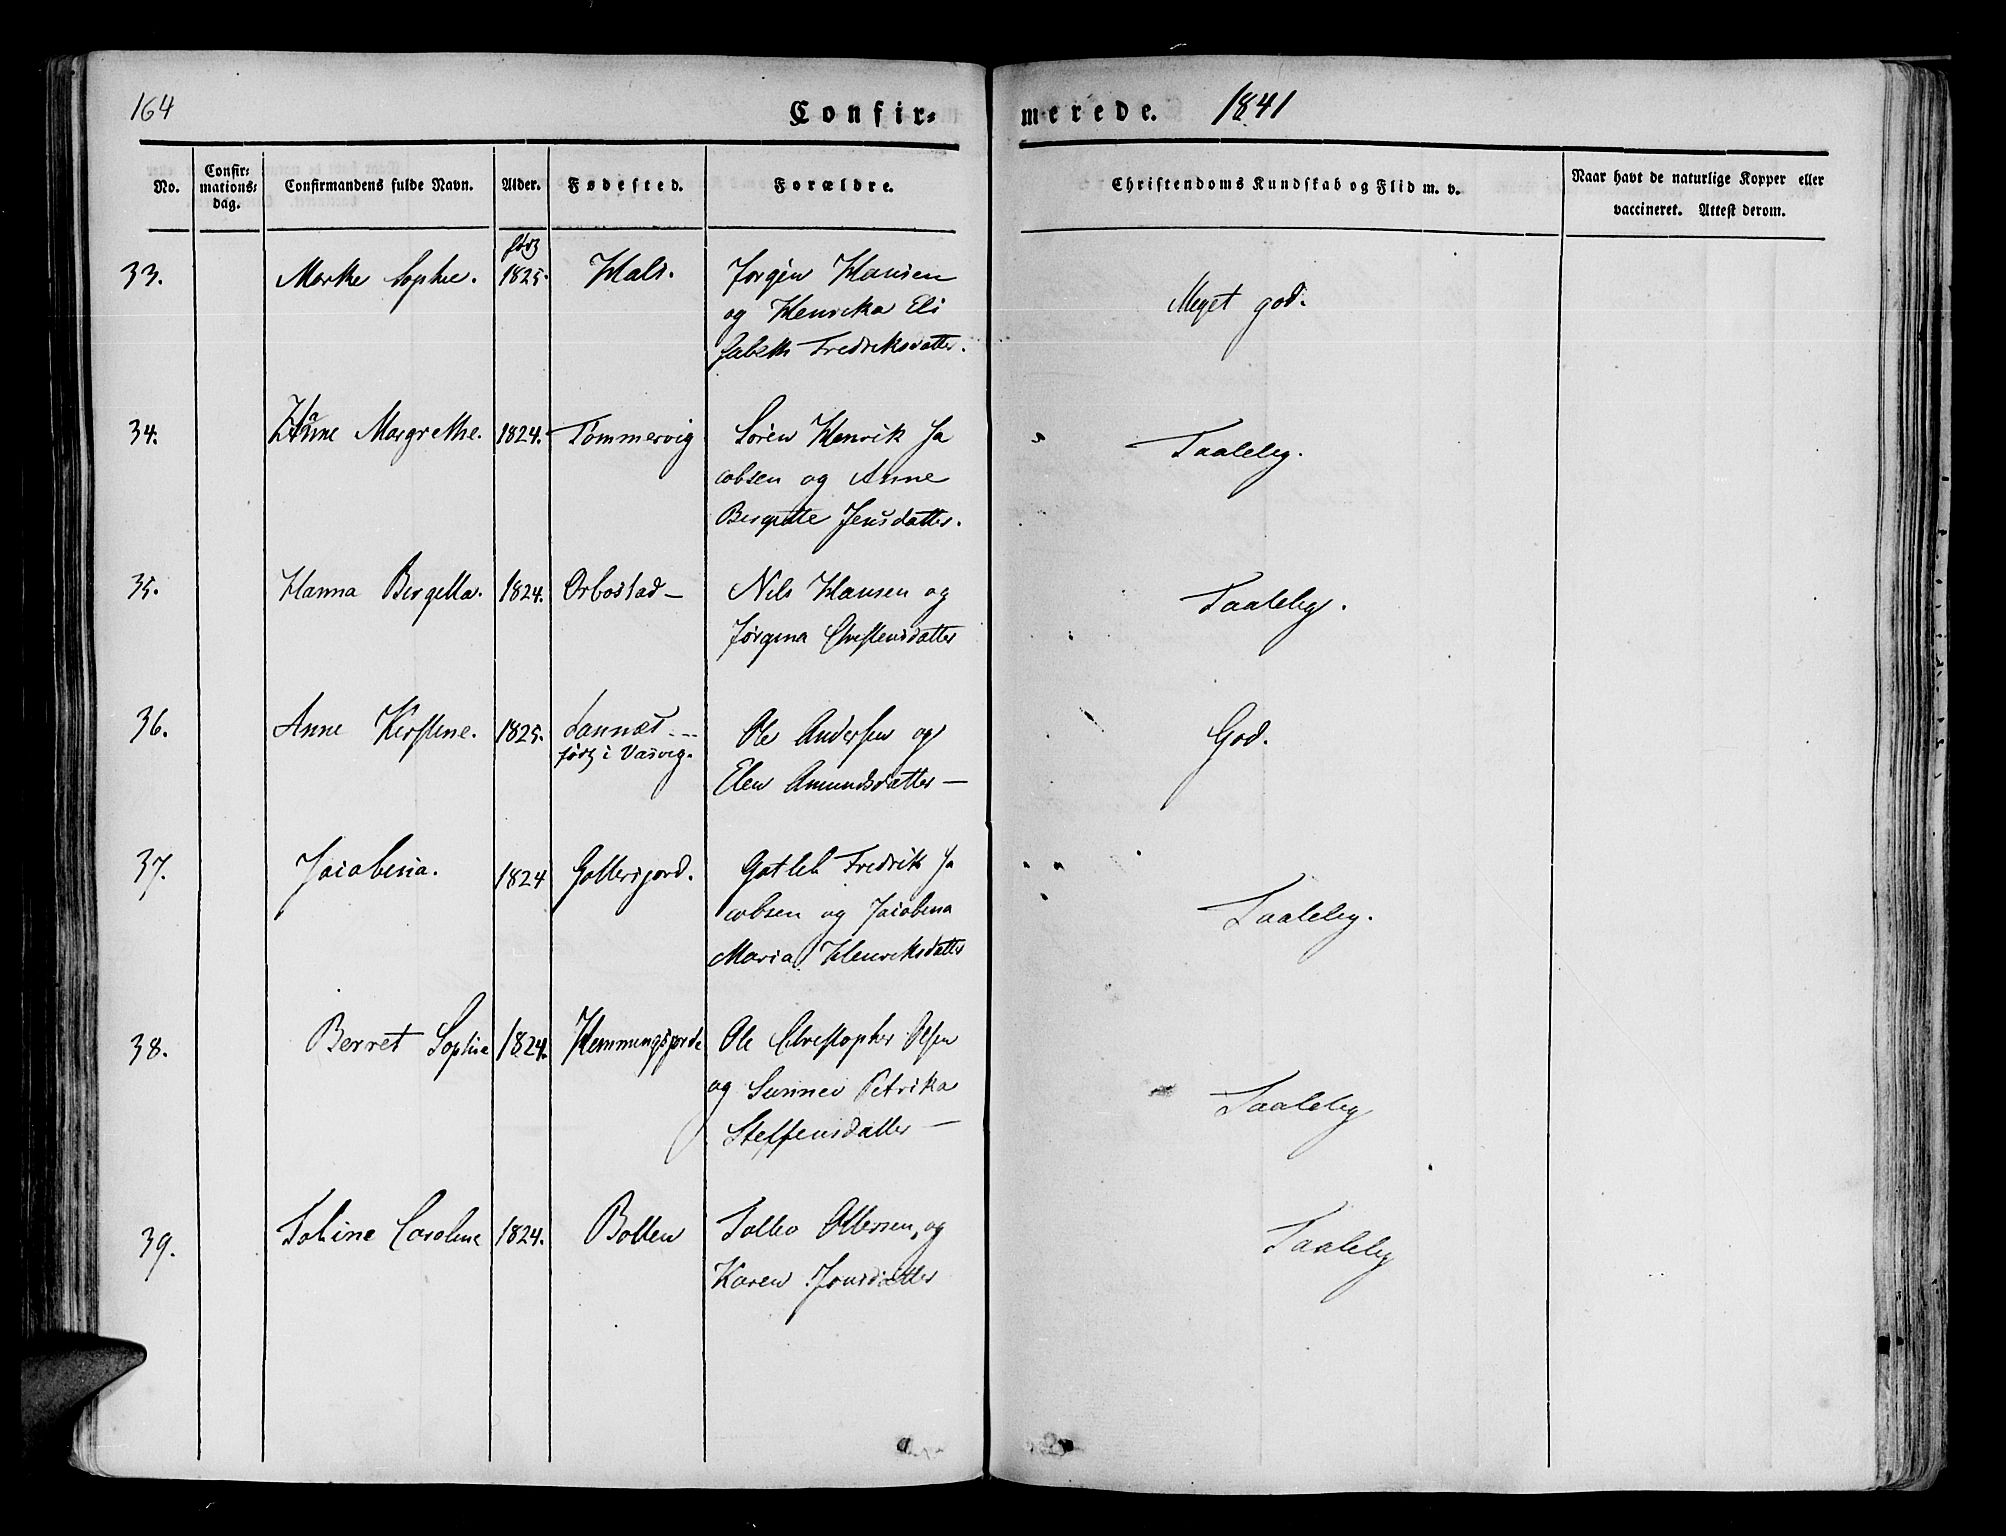 164
Confir=
merede. 1841
No.
Confir=
mations=
dag.
Confirmandens fulde Navn.
Alder.
Fødested.
Forældre.
Christendoms Kundskab og Flid m. v.
Naar havt de naturlige Kopper eller
vaccineret. Attest derom.
født
33. Marthe Sophie. 1825. Hals. Jørgen Hansen
og Henrika Eli
sabeth Fredriksdatter.
Meget god.
34. Hanne Margrethe. 1824. Tømmervig Søren Henrik Ja
cobsen og Anne
Bergitte Jensdatter.
Taalelig.
35. Hanna Bergitta. 1824. Orbostad — Nils Hansen og
Jørgina Christensdatter
Taalelig.
36. Anne Kirstine. 1825. Sannæs
født i Vasvig. Ole Andersen og
Elen Amundsdatter —
God.
37. Jacobina. 1824 Gottesjord. Gotleb Fredrik Ja
cobsen og Jacobina
Maria Henriksdatter
Taalelig.
38. Berret Sophie 1824. Hemmingsjorde Ole Christopher Olsen
og Sunnev Petrika
Steffensdatter —
Taalelig
39. Tobine Caroline 1824. Botten Tollev Ottersen, og
Karen Jonsdatter
Taalelig